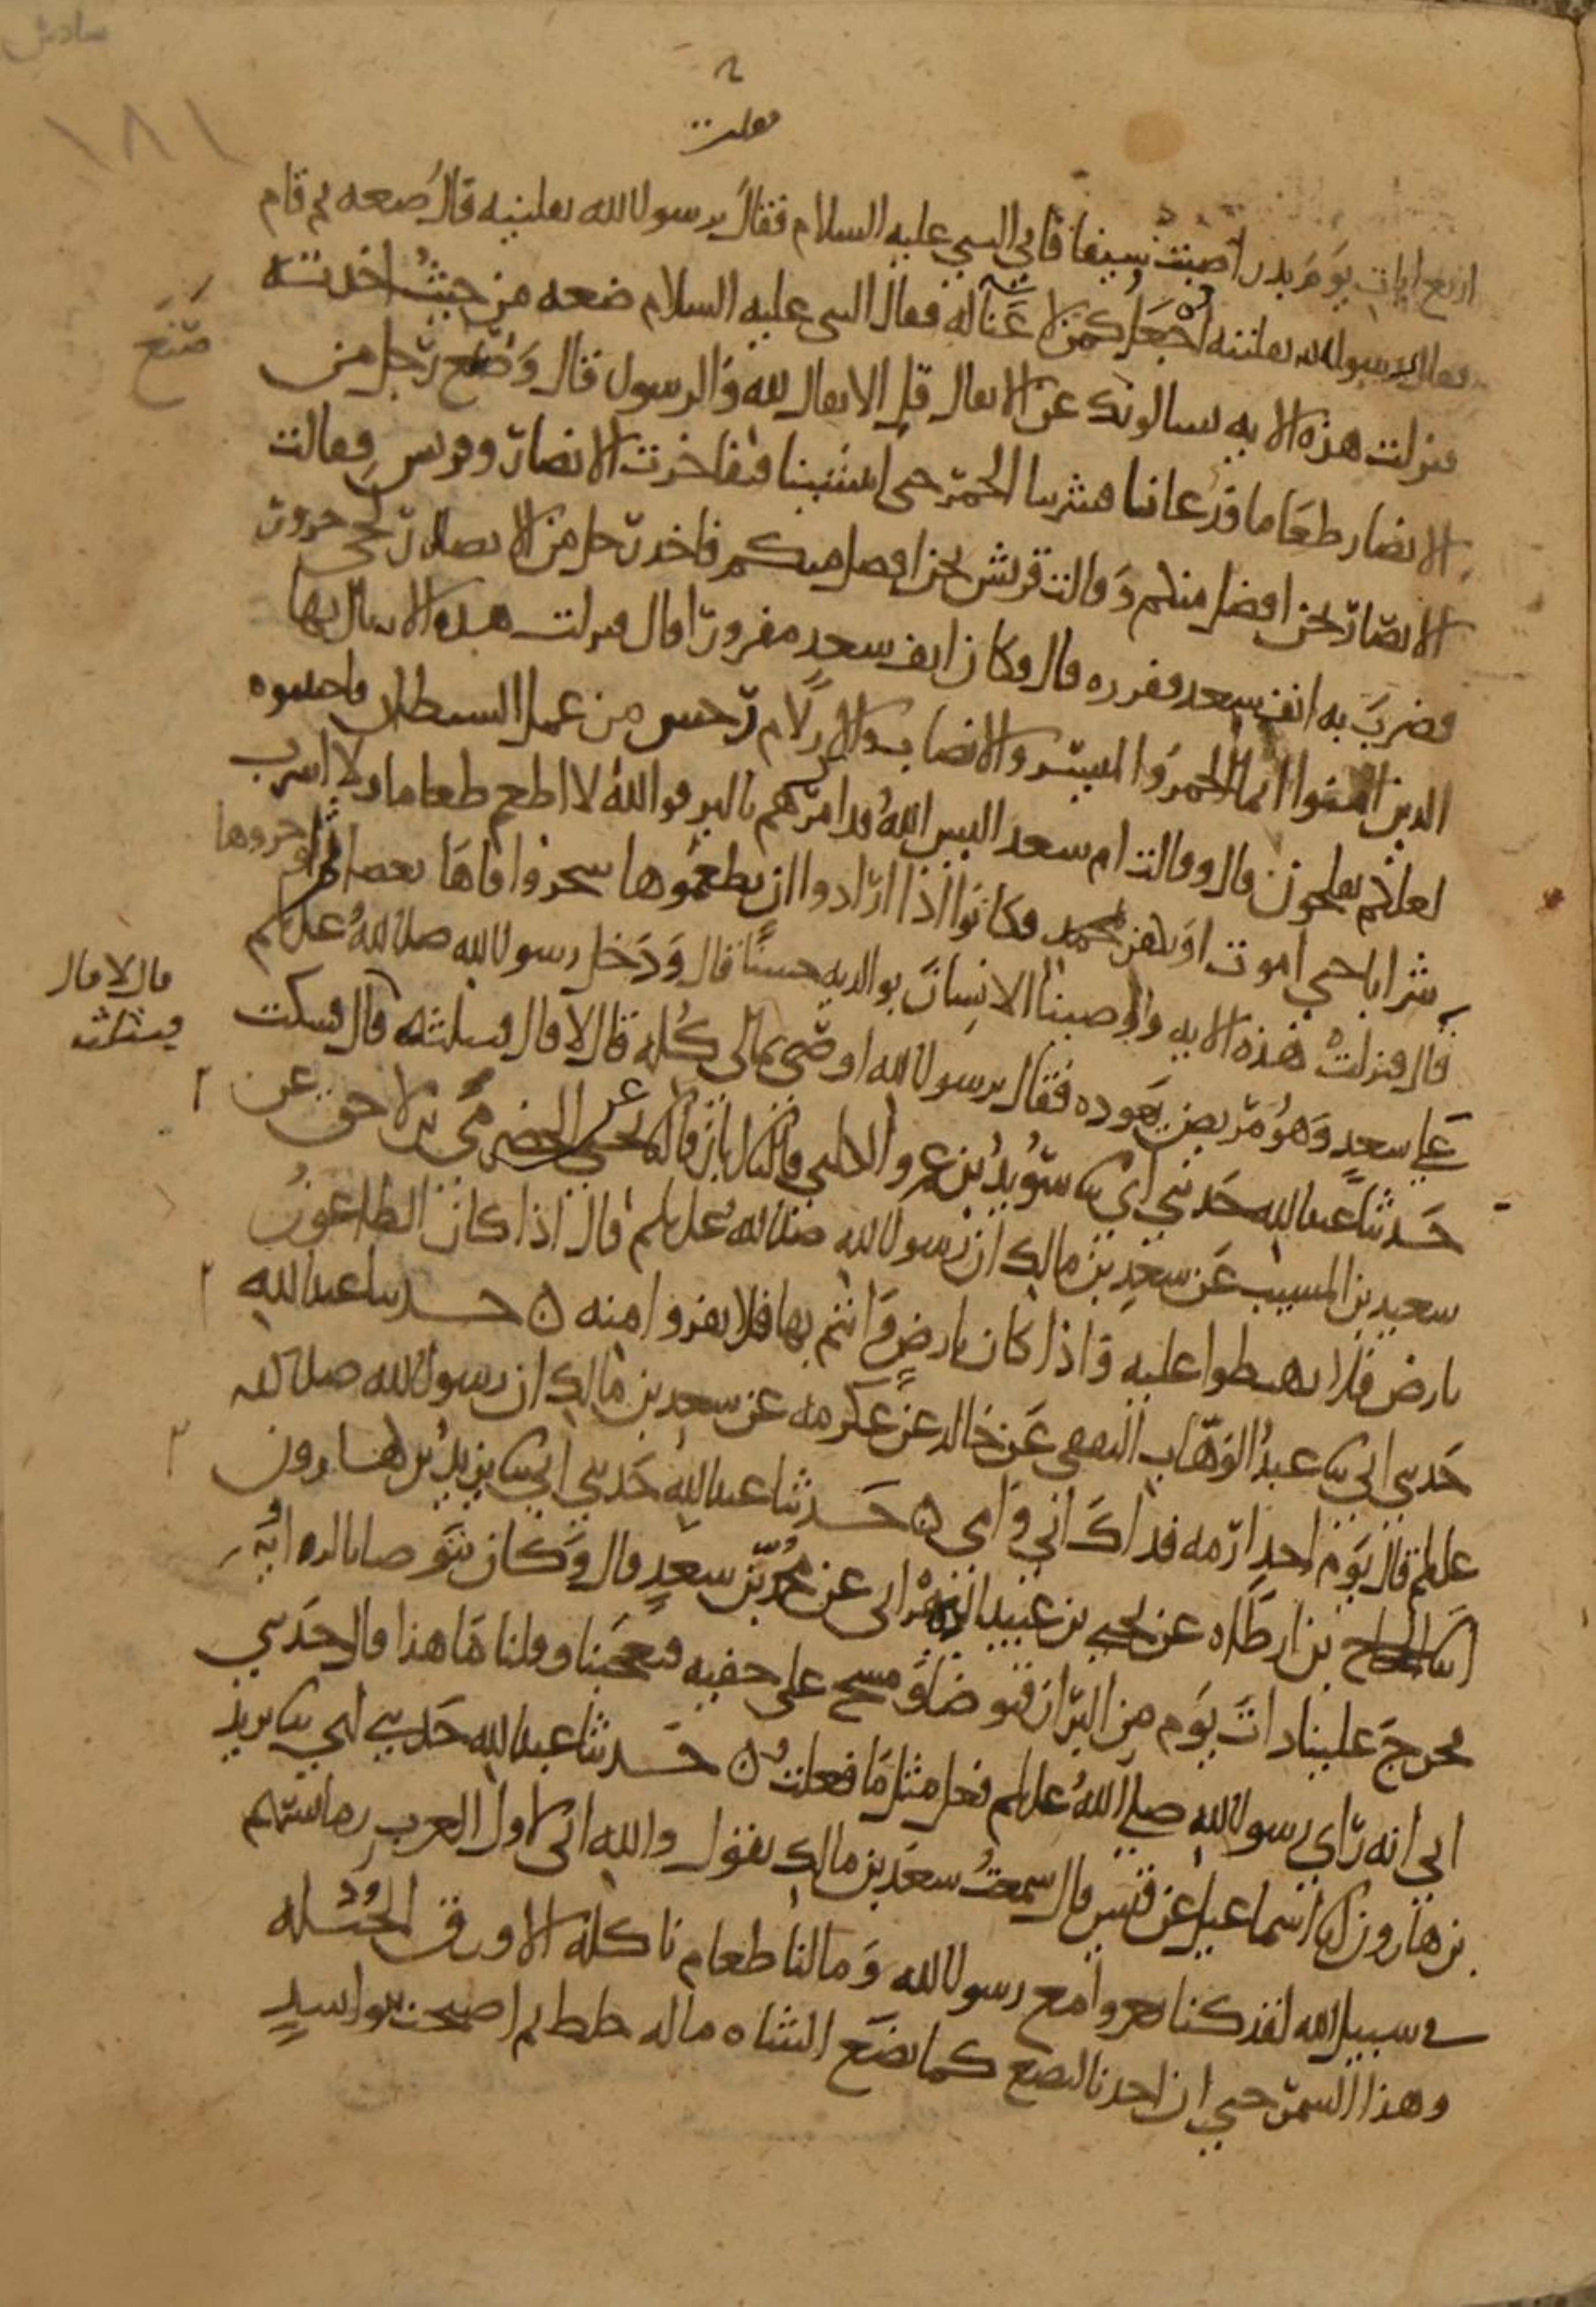 سادس
١٨١
٢
معلت
اربع ايات يوم بدر اصبت سيفا فاتى النبي عليه السلام فقال يرسول الله نفلنيه قال ضعه ثم قام
فقال يرسول الله نفلنيه اجعل كمن لا غناله فقال النبي عليه السلام ضعه من حيث اخذته
فنزلت هذه الايه يسالونك عن الانفال قل الانفال لله والرسول قال وصنع رجل من
صنع
الانصار طعاما فدعانا فشربنا الخمر حتى انتشينا فتفاخرت الانصار وقريش فقالت
الانصار نحن افضل منكم وقالت قريش نحن افضل منكم فاخذ رجل من الانصار لحى جزور
فضرب به انف سعد ففزره قال وكان انف سعد مفزورا قال فنزلت هذه الايه يايها
الذين امنوا انما الخمر والميسر والانصاب والازلام رجس من عمل الشيطان فاجتنبوه
لعلكم تفلحون قال وقالت ام سعد اليس الله قد امرهم بالبر فوالله لا اطعم طعاما ولا اشرب
شرابا حتى اموت او تكفر بمحمد فكانوا اذا ارادوا ان يطعموها شجروا فاها بعصا ثم اوجروها
قال فنزلت هذه الايه ووصينا الانسان بوالديه حسنا قال ودخل رسول الله صلى الله عليه وسلم
على سعد وهو مريض يعوده فقال يرسول الله اوصى بمالى كله قال لا قال فبثلثه قال فسكت
قال لا قال
فبثلث
حدثنا عبدالله حدثني ابي ثنا سويد بن عمرو الكلبي قال ثنا ابان قال ثنا يحيى عن الحضرمي بن لاحق عن
سعيد بن المسيب عن سعد بن مالك ان رسول الله صلى الله عليه وسلم قال اذا كان الطاعون
بارض فلا تهبطوا عليه واذا كان بارض وانتم بها فلا تفروا منه ه حدثنا عبدالله
حدثني ابي ثنا عبد الوهاب الثقفي عن خالد عن عكرمه عن سعد بن مالك ان رسول الله صلى الله
عليه وسلم قال يوم احد ارمه فداك ابي وامي ه حدثنا عبدالله حدثني ابي ثنا يزيد بن هارون
انا الحجاج بن ارطاه عن يحيى بن عبيد البهراني عن محمد بن سعد قال وكان يتوضا بالزاويه
فخرج علينا ذات يوم من البراز فتوضا ومسح على خفيه فتعجبنا وقلنا ما هذا قال حدثني
ابي انه راى رسول الله صلى الله عليه وسلم فعل مثل ما فعلت ه حدثنا عبدالله حدثني ابي ثنا يزيد
بن هارون انا اسماعيل عن قيس قال سمعت سعد بن مالك يقول والله اني لاول العرب رما بسهم
في سبيل الله لقد كنا نغزوا مع رسول الله وما لنا طعام ناكله الا ورق الحبله
وهذا السمر حتى ان احدنا ليضع كما تضع الشاه ماله خلط ثم اصبحت بنوا اسد